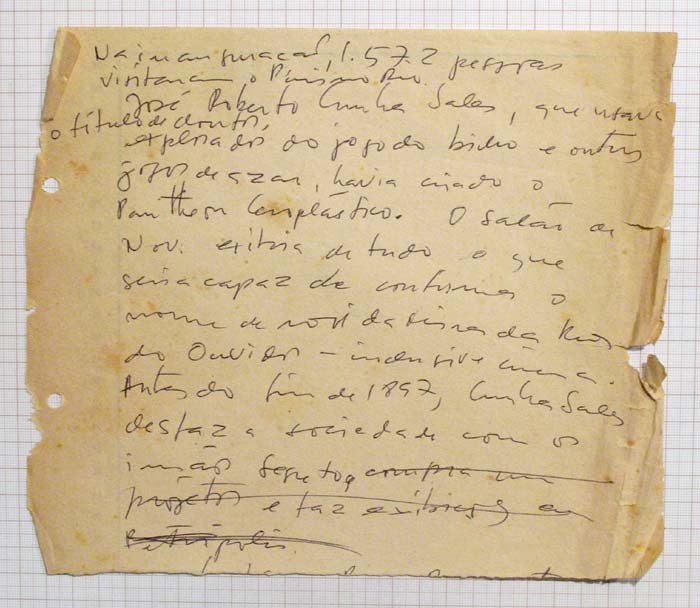 Na inauguração, 1.572 pessoas
visitaram o Parisino Rio.
José Roberto Cunha Sales, que usava
o título de doutor,
explorador do jogo do bicho e outros
jogos de azar, havia criado o
Pantheon Ceroplástico. O Salão de
Nov. exibia de tudo o que
seria capaz de confirmar o
nome de novidadeira da Rua
do Ouvidor – inclusive cinema.
Antes do fim de 1897, Cunha Sales
desfaz a sociedade com os
irmãos Segreto, compra um
projetor e faz exibições em
Petrópolis.